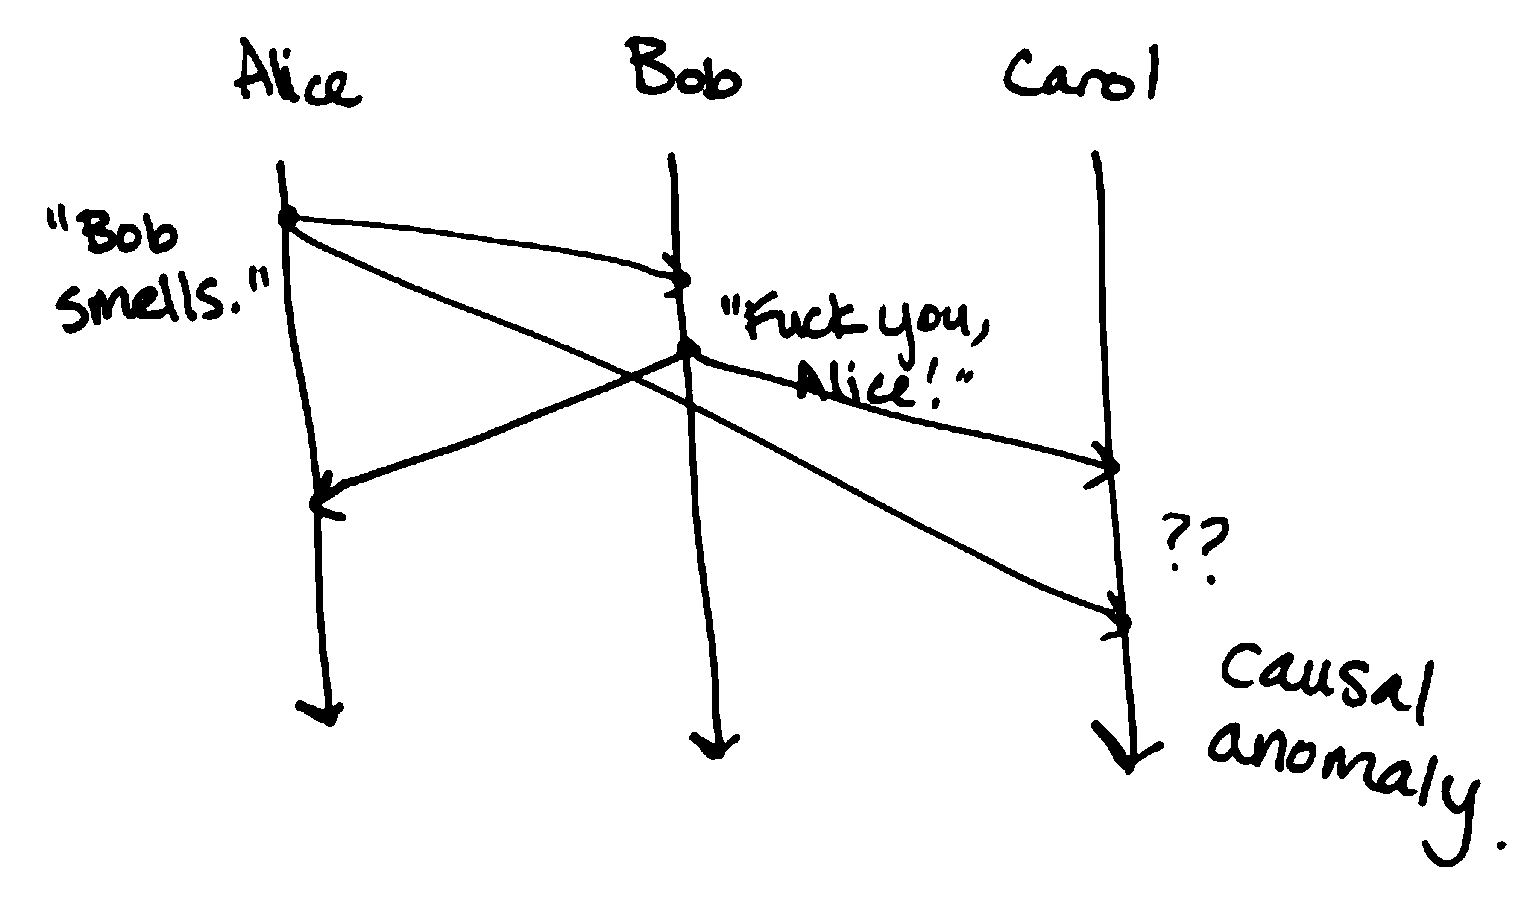 Alice
Bob
Carol
"Bob
smells."
"Fuck you,
Alice!"
??
Causal
anomaly.